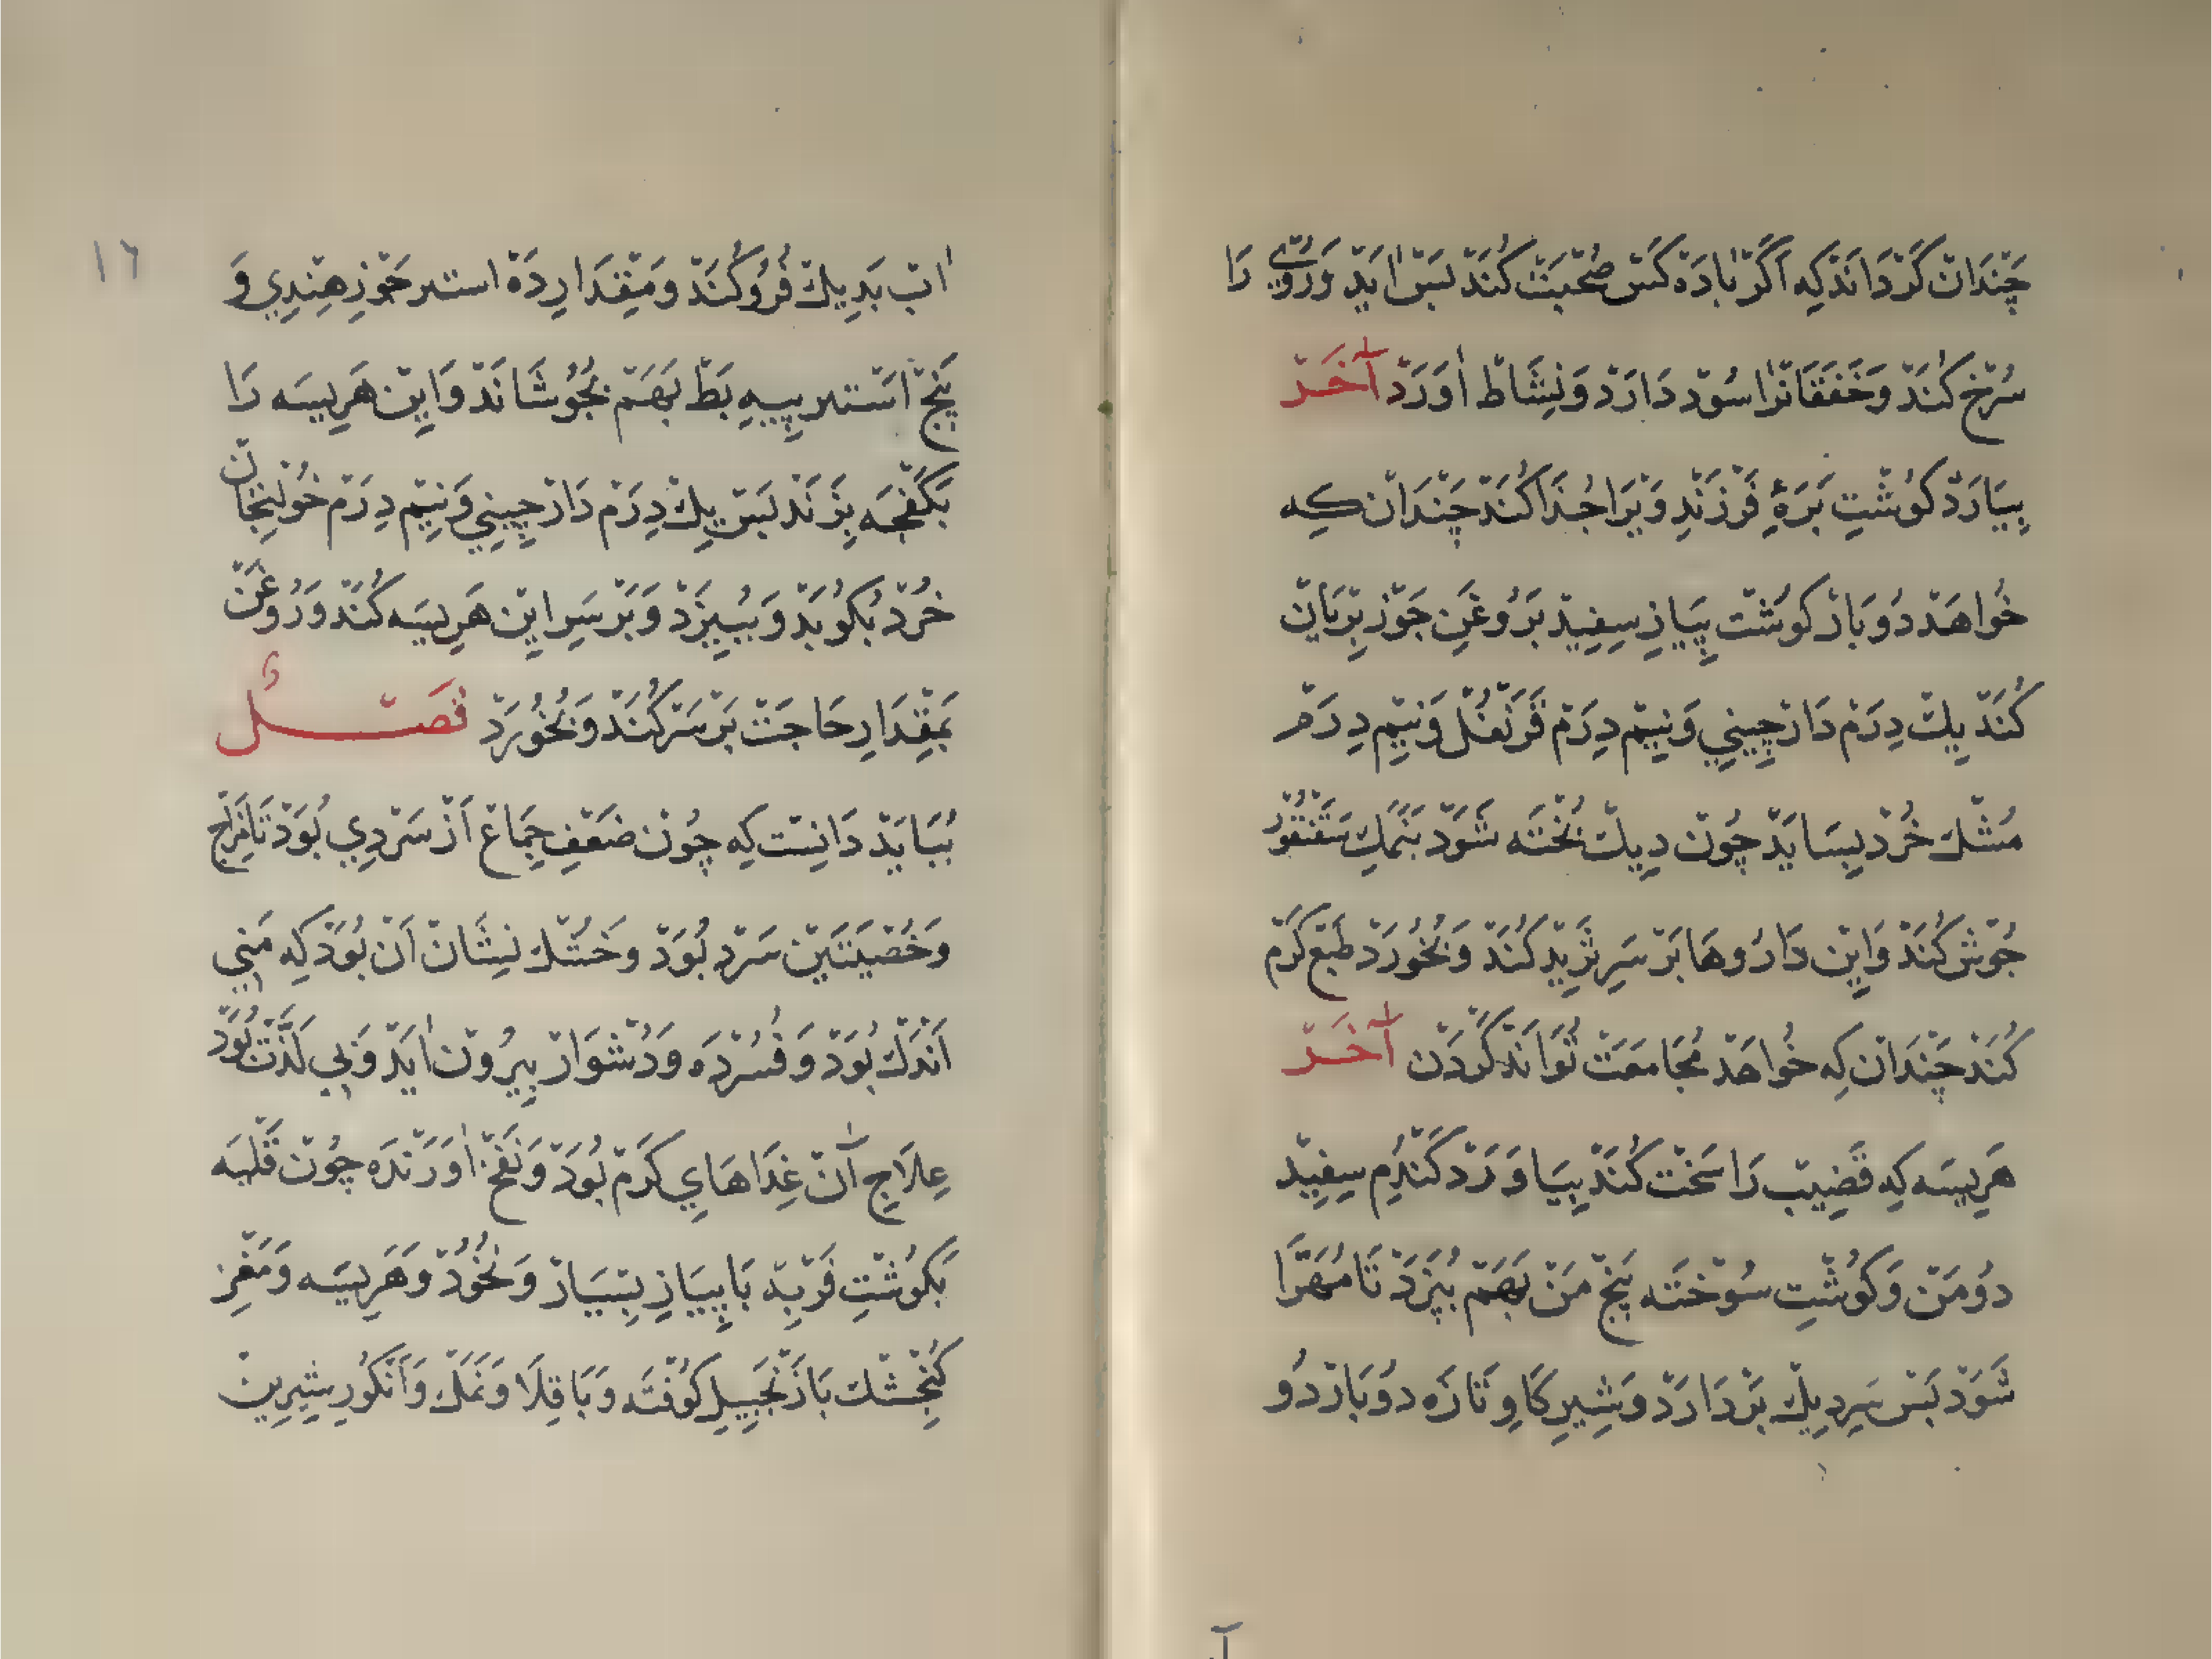 چَنْدَانْ كَرْدَانَدْ كِه اَكَرْ بَادَهْ كَسْ صُحْبَتْ كُنَدْ بَسْ اٰيَدْ وَرُوْيْ رَا
سُرْخ كُنَدْ وَخَفَقَانْرٰا سُوْد دَارَدْ وَنِشَاطْ اٰوَرَدْ آخَـرْ
بِيَارَدْ كُوشْتِ بَرَهٔ فَرْزَنْدِ وَيْرَا جُدَا كُنَدْ چَنْدَانْ كِه
خُواهَدْ دُوبَارْ كُوشْت پِيَازِ سِفِيْد بَرُوغَنِ جَوْز بِرْيَانْ
كُنَدْ يِكْ دِرَمْ دَارْچِيْنِي وَنِيْم دِرَمْ قَرَنْفُلْ وَنِيْم دِرَمْ
مُشْكْ خُرْد بِسَايَدْ چُونْ دِيكْ پُخْتَه شَوَدْ بَنَمَكِ سَقَنْقُوْر
جُوْشْ كُنَدْ وَايِنْ دَارُوهَا بَرْ سَرِ ثَرِيْد كُنَدْ وَبُخُورَدْ طَبْع كَرْم
كُنَدْ چَنْدَانْ كِه خُواهَدْ مُجَامَعَتْ تُوَانَدْ كَرْدَنْ آخَـرْ
هَرِيسَه كِه قَضِيبْ رَا سَخْتْ كُنَدْ بِيَاوَرَدْ كَنْدُمِ سِفِيْد
دُو مَنْ وَكُوشْتِ سُوْخْتَه پَنْج مَنْ بَهَمْ بُپَزَدْ تَا مُهَرَّا
شَوَدْ پَسْ سَرِ دِيكْ بَرْدَارَدْ وَشِيرِ كَاوِ تَازَه دُوبَار دُو
١٦
اٰبْ بَدِيكْ فُرُو كُنَدْ وَمِقْدَارِ دَهْ استير جَوْزِ هِنْدِي وَ
پَنْج اَسْتير پِيهِ بَطْ بَهَمْ بُجُوشَانَدْ وَايِنْ هَرِيسَه رَا
بَكَفْچَه بِزَنَدْ پَسْ يِكْ دِرَمْ دَارْچِيْنِي وَنِيْم دِرَمْ خُولِنْجَانْ
خُرْد بُكُوبَدْ وَبُبِيزَدْ وَبَرْ سَرِ ايِنْ هَرِيسَه كُنَدْ وَرُوغَنْ
بَمِقْدَارِ حَاجَتْ بَرْ سَرْ كُنَدْ وَبُخُورَدْ فَصْـلٌ
بُبَايَدْ دَانِسْت كِه چُونْ ضَعْفِ جِمَاعْ اَزْ سَرْدِي بُوَدْ تَا مِزَاجْ
وَخُصْيَتَيْنْ سَرْد بُوَدْ وَخُشْكْ نِشَانْ اٰنْ بُوَدْ كِه مَنِي
اَنْدَكْ بُوَدْ وَفُسُرْدَه وَدُشْوَارْ بِيرُونْ اٰيَدْ وَبِي لَذَّتْ بُوَدْ
عِلَاجِ آنْ غِذَاهَايِ كَرْمْ بُوَدْ وَنَفْخْ اٰوَرَنْدَه چُونْ قَلْيَه
بَكُوشْتِ فَرْبِهْ بَا پِيَازِ بِسْيَارْ وَنُخُودْ وَهَرِيسَه وَمَغْزِ
كُنْجِشْكْ بَا زَنْجَبِيلِ كُوفْتَه وَبَاقِلَا وَنَمَكْ وَاَنْكُورِ شِيرِينْ